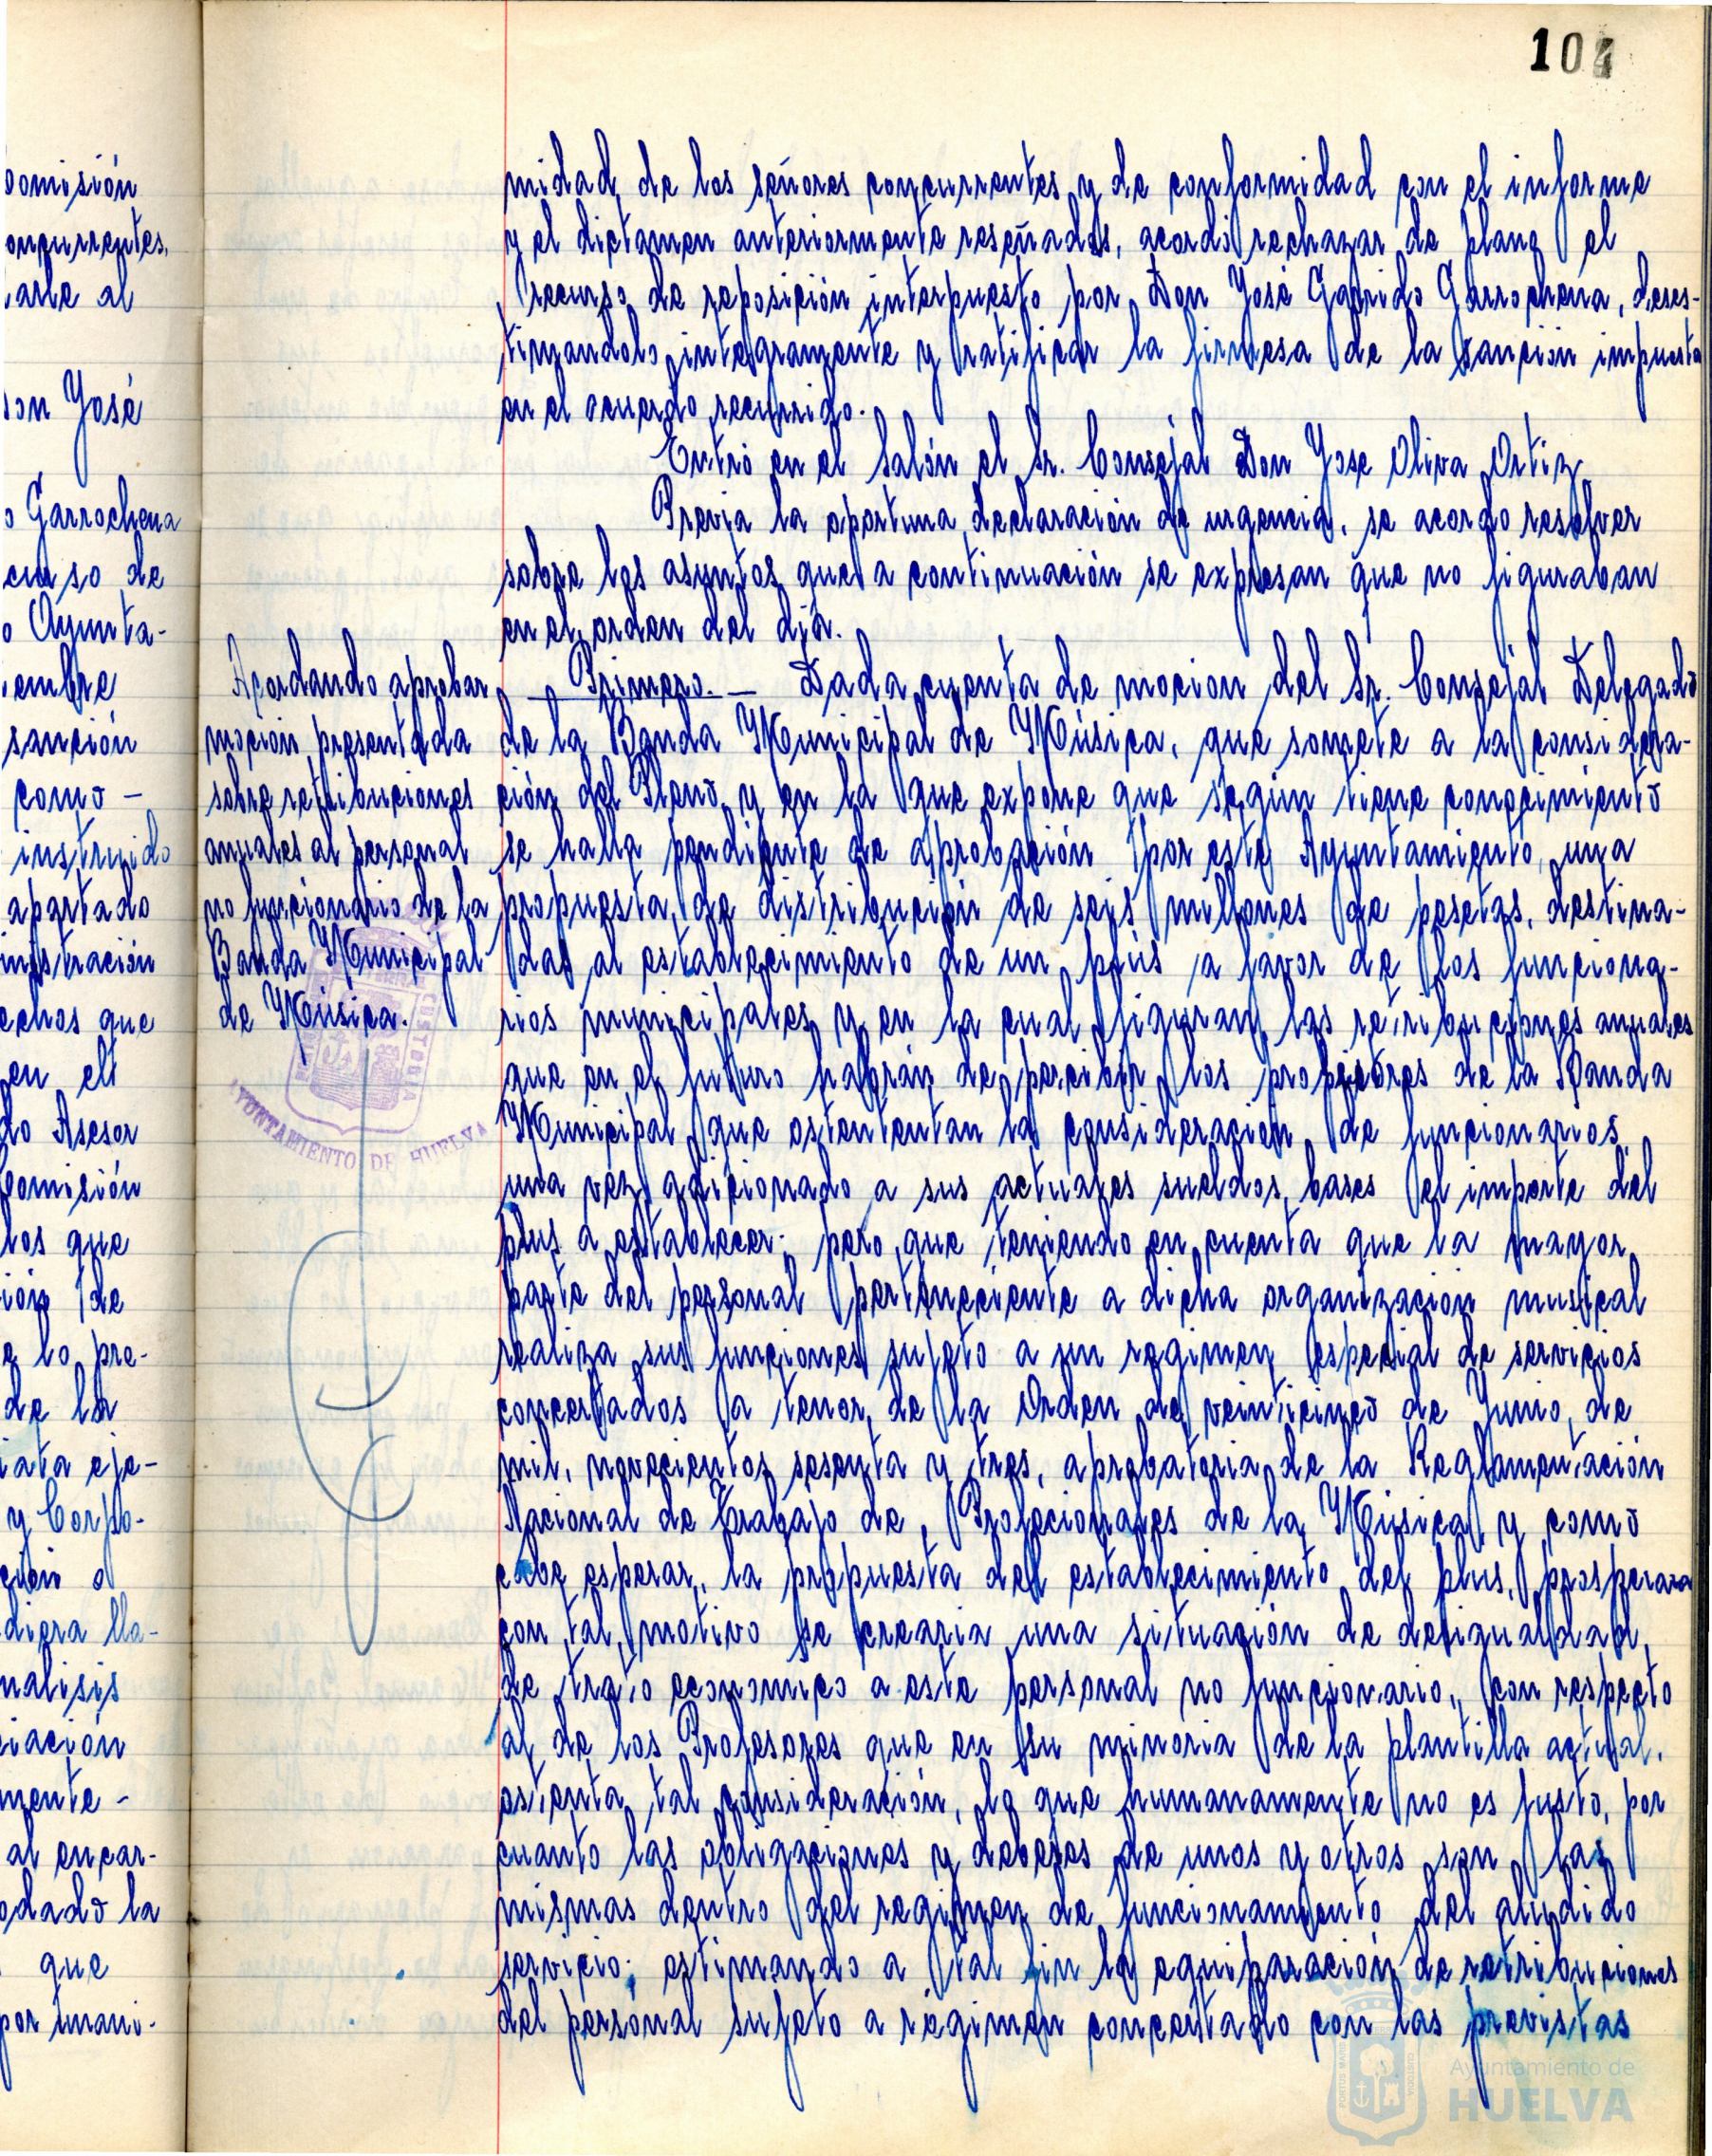 104
omisión
oncurrentes,
arle al
on José
o Garrochena
curso de
o Ayunta-
iembre
sanción
como -
instruido
apartado
inistración
echos que
en el
do Asesor
Comisión
los que
ión de
e lo pre-
de la
iata eje-
y Corpo-
ción o
diera lla-
nalisis
ciación
mente -
al encar-
odado la
que
por unani-
midad de los señores concurrentes y de conformidad con el informe
y el dictamen anteriormente reseñados, acordó rechazar de plano el
recurso de reposición interpuesto por Don José Garrido Garrochena, deses-
timandolo integramente y ratificar la firmesa de la sanción impuesta
en el acuerdo recurrido.
Entró en el Salón el Sr. Consejal Don Jose Oliva Ortiz.
Previa la oportuna declaración de urgencia, se acordo resolver
sobre los asuntos que a continuación se expresan que no figuraban
en el orden del día.
Acordando aprobar
moción presentada
sobre retribuciones
anuales al personal
no funcionario de la
Banda Municipal
de Música.
— Primero. — Dada cuenta de mocion del Sr. Consejal Delegado
de la Banda Municipal de Música, que somete a la considera-
ción del Pleno y en la que expone que según tiene conocimiento
se halla pendiente de aprobación por este Ayuntamiento, una
propuesta de distribución de seis millones de pesetas, destina-
das al establecimiento de un plus a favor de los funciona-
rios municipales y en la cual figuran las retribuciones anuales
que en el futuro habrán de percibir los profesores de la Banda
Municipal que ostententan la consideración de funcionarios,
una vez adicionado a sus actuales sueldos bases el importe del
plus a establecer; pero que teniendo en cuenta que la mayor
parte del personal perteneciente a dicha organización musical
realiza sus funciones sujeto a un regimen especial de servicios
concertados a tenor de la Orden de veinticinco de Junio de
mil novecientos sesenta y tres, aprobatoria de la Reglamentación
Nacional de Trabajo de Profecionales de la Música y como
cabe esperar, la propuesta del establecimiento del plus, prosperara
con tal motivo se crearia una situación de desigualdad
de trato economico a este personal no funcionario, con respecto
al de los Profesores que en su minoria de la plantilla actual,
ostenta tal consideración, lo que humanamente no es justo, por
cuanto las obligaciones y deberes de unos y otros son las
mismas dentro del regimen de funcionamiento del aludido
servicio; estimando a tal fin la equiparación de retribuciones
del persónal sujeto a régimen concertado con las previstas
AYUNTAMIENTO DE HUELVA
Ayuntamiento de
HUELVA